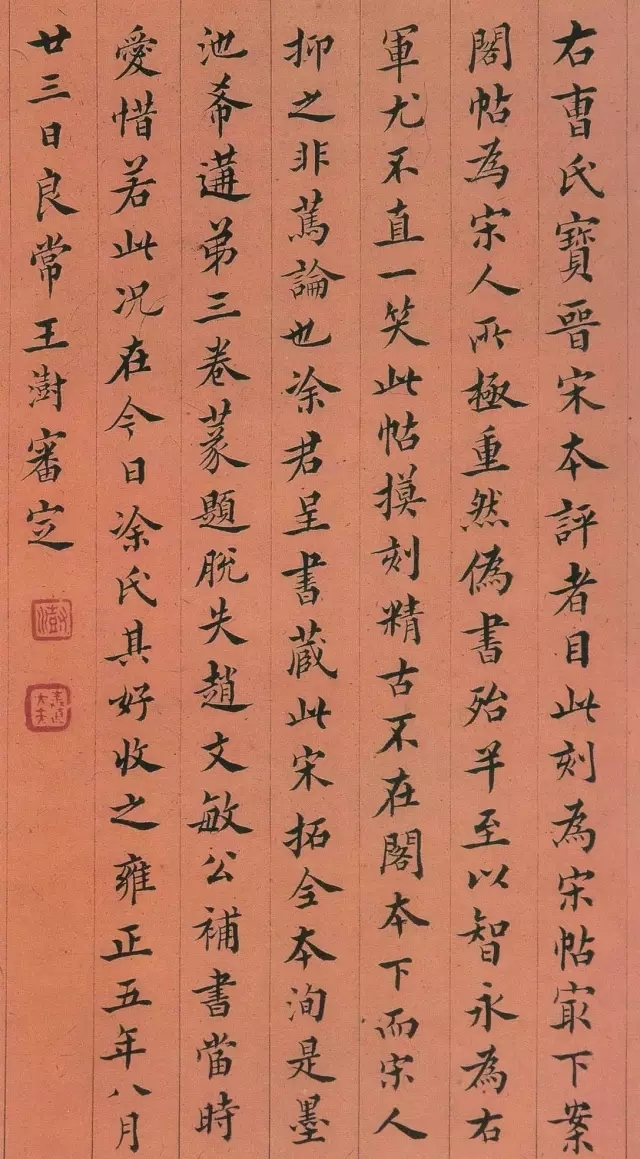 右曹氏寶晉宋本評者目此刻為宋帖寂下案
閣帖為宋人所極重然偽書殆半至以智永為右
軍尤不直一笑此帖摸刻精古不在閣本下而宋人
抑之非篤論也涂君呈書藏此宋拓全本洵是墨
池希遘弟三卷篆題脫失趙文敏公補書當時
愛惜若此況在今日涂氏其好收之雍正五年八月
廿三日良常王澍審定
澍